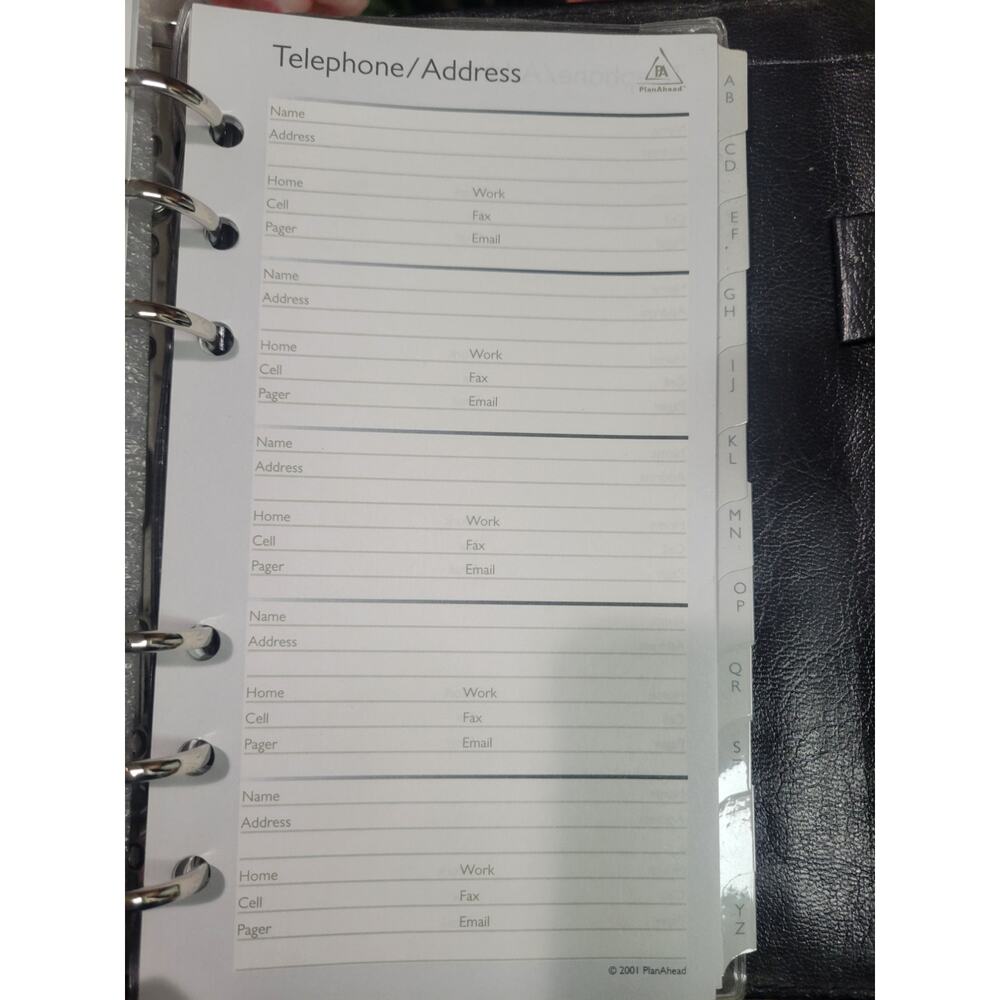 Telephone/Address
PA
PlanAhead™
Name
Address
Home Work
Cell Fax
Pager Email
Name
Address
Home Work
Cell Fax
Pager Email
Name
Address
Home Work
Cell Fax
Pager Email
Name
Address
Home Work
Cell Fax
Pager Email
Name
Address
Home Work
Cell Fax
Pager Email
© 2001 PlanAhead
A
B
C
D
E
F
G
H
I
J
K
L
M
N
O
P
Q
R
S
Y
Z